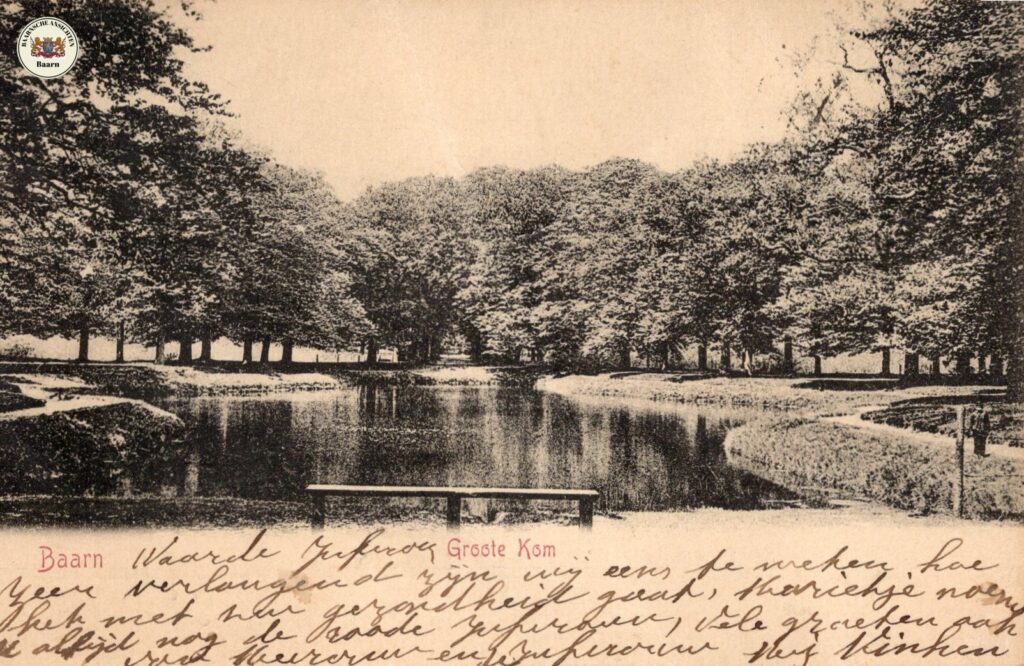 BAARNSCHE ANSICHTEN
Baarn
Baarn Groote Kom
Waarde Jufrow
zeer verlangend zijn wij eens te weken hoe
het met uw gezondheid gaat, Marietje noem
U altijd nog de zoode Jufrouw, vele groeten ook
van Mevrouw en Jufrouw Vinken